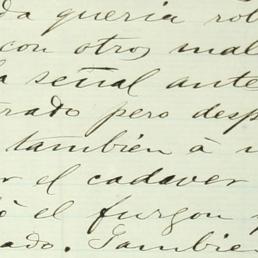 da queria rob
con otros mal
a señal ante
rado pero desp
también à u
r el cadaver
ó el furgon
ado. Tambien